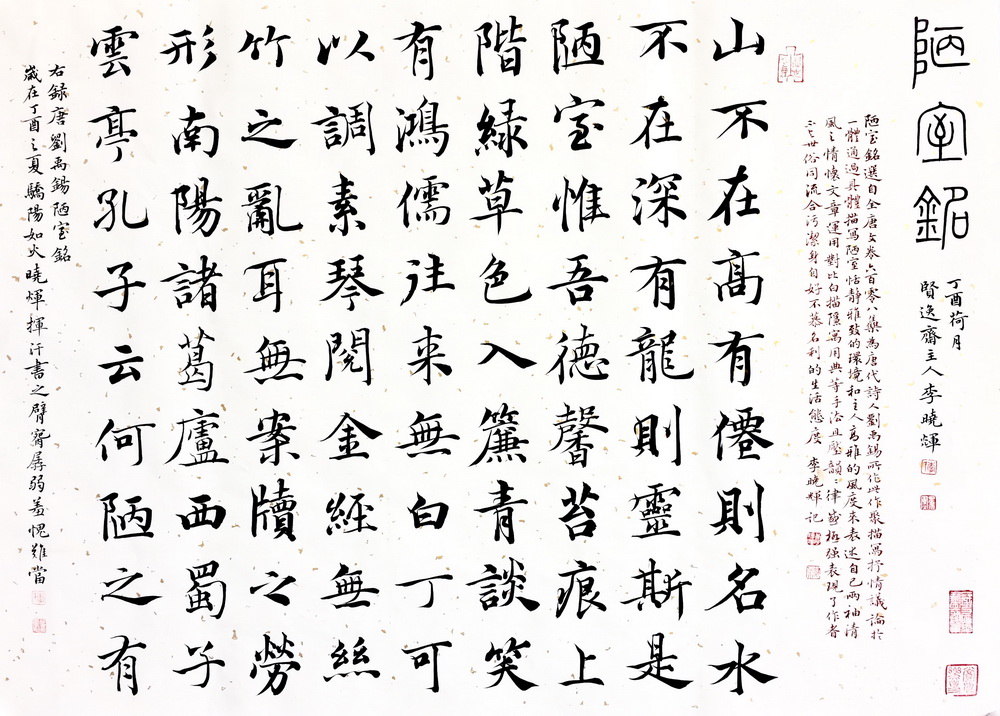 陋室銘
丁酉荷月
賢逸齋主人李曉煇
陋室銘選自全唐文卷六百零八集為唐代詩人劉禹錫所作此作聚描寫抒情議論於
一體通過具體描寫陋室恬靜雅致的環境和主人高雅的風度来表述自己兩袖清
風之情懷文章運用對比白描隱寓用典等手法且壓韻韻律感極強表現了作者
不與世俗同流合污潔身自好不慕名利的生活態度 李曉輝記
山不在高有僊則名水
不在深有龍則靈斯是
陋室惟吾德馨苔痕上
階緑草色入簾青談笑
有鴻儒往来無白丁可
以調素琴閱金經無絲
竹之亂耳無案牘之勞
形南陽諸葛廬西蜀子
雲亭孔子云何陋之有
右録唐劉禹錫陋室銘
歲在丁酉之夏驕陽如火曉煇揮汗書之臂窘孱弱羞愧難當